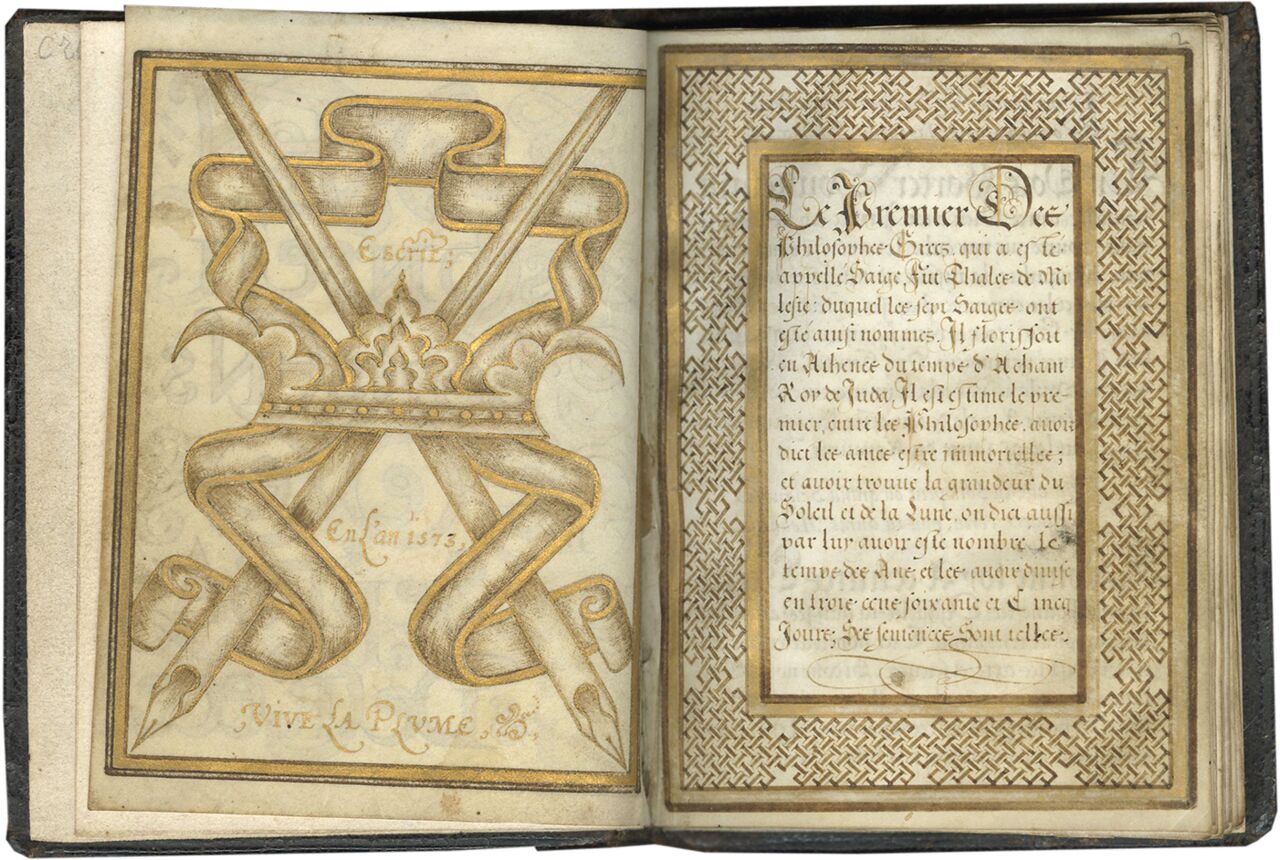 Escrit;
En L'an 1573,
VIVE LA PLVME,
2
Le Premier Des
Philosophes Grecz, qui a este
appelle Saige Fût Thales de Mi
lesie: duquel les sept Saiges ont
esté ainsi nommes. Il florissoit
en Athenes du temps d'Acham
Roy de Juda, Il est estime le pre-
mier, entre les Philosophes, auoir
dict les ames estre immortelles;
et auoir trouue la grandeur du
Soleil et de la Lune, on dict aussi
par luy auoir este nombre le
temps des Ans, et les auoir diuise
en trois cens soixante et Cincq
Jours; Ses sentences Sont telles.